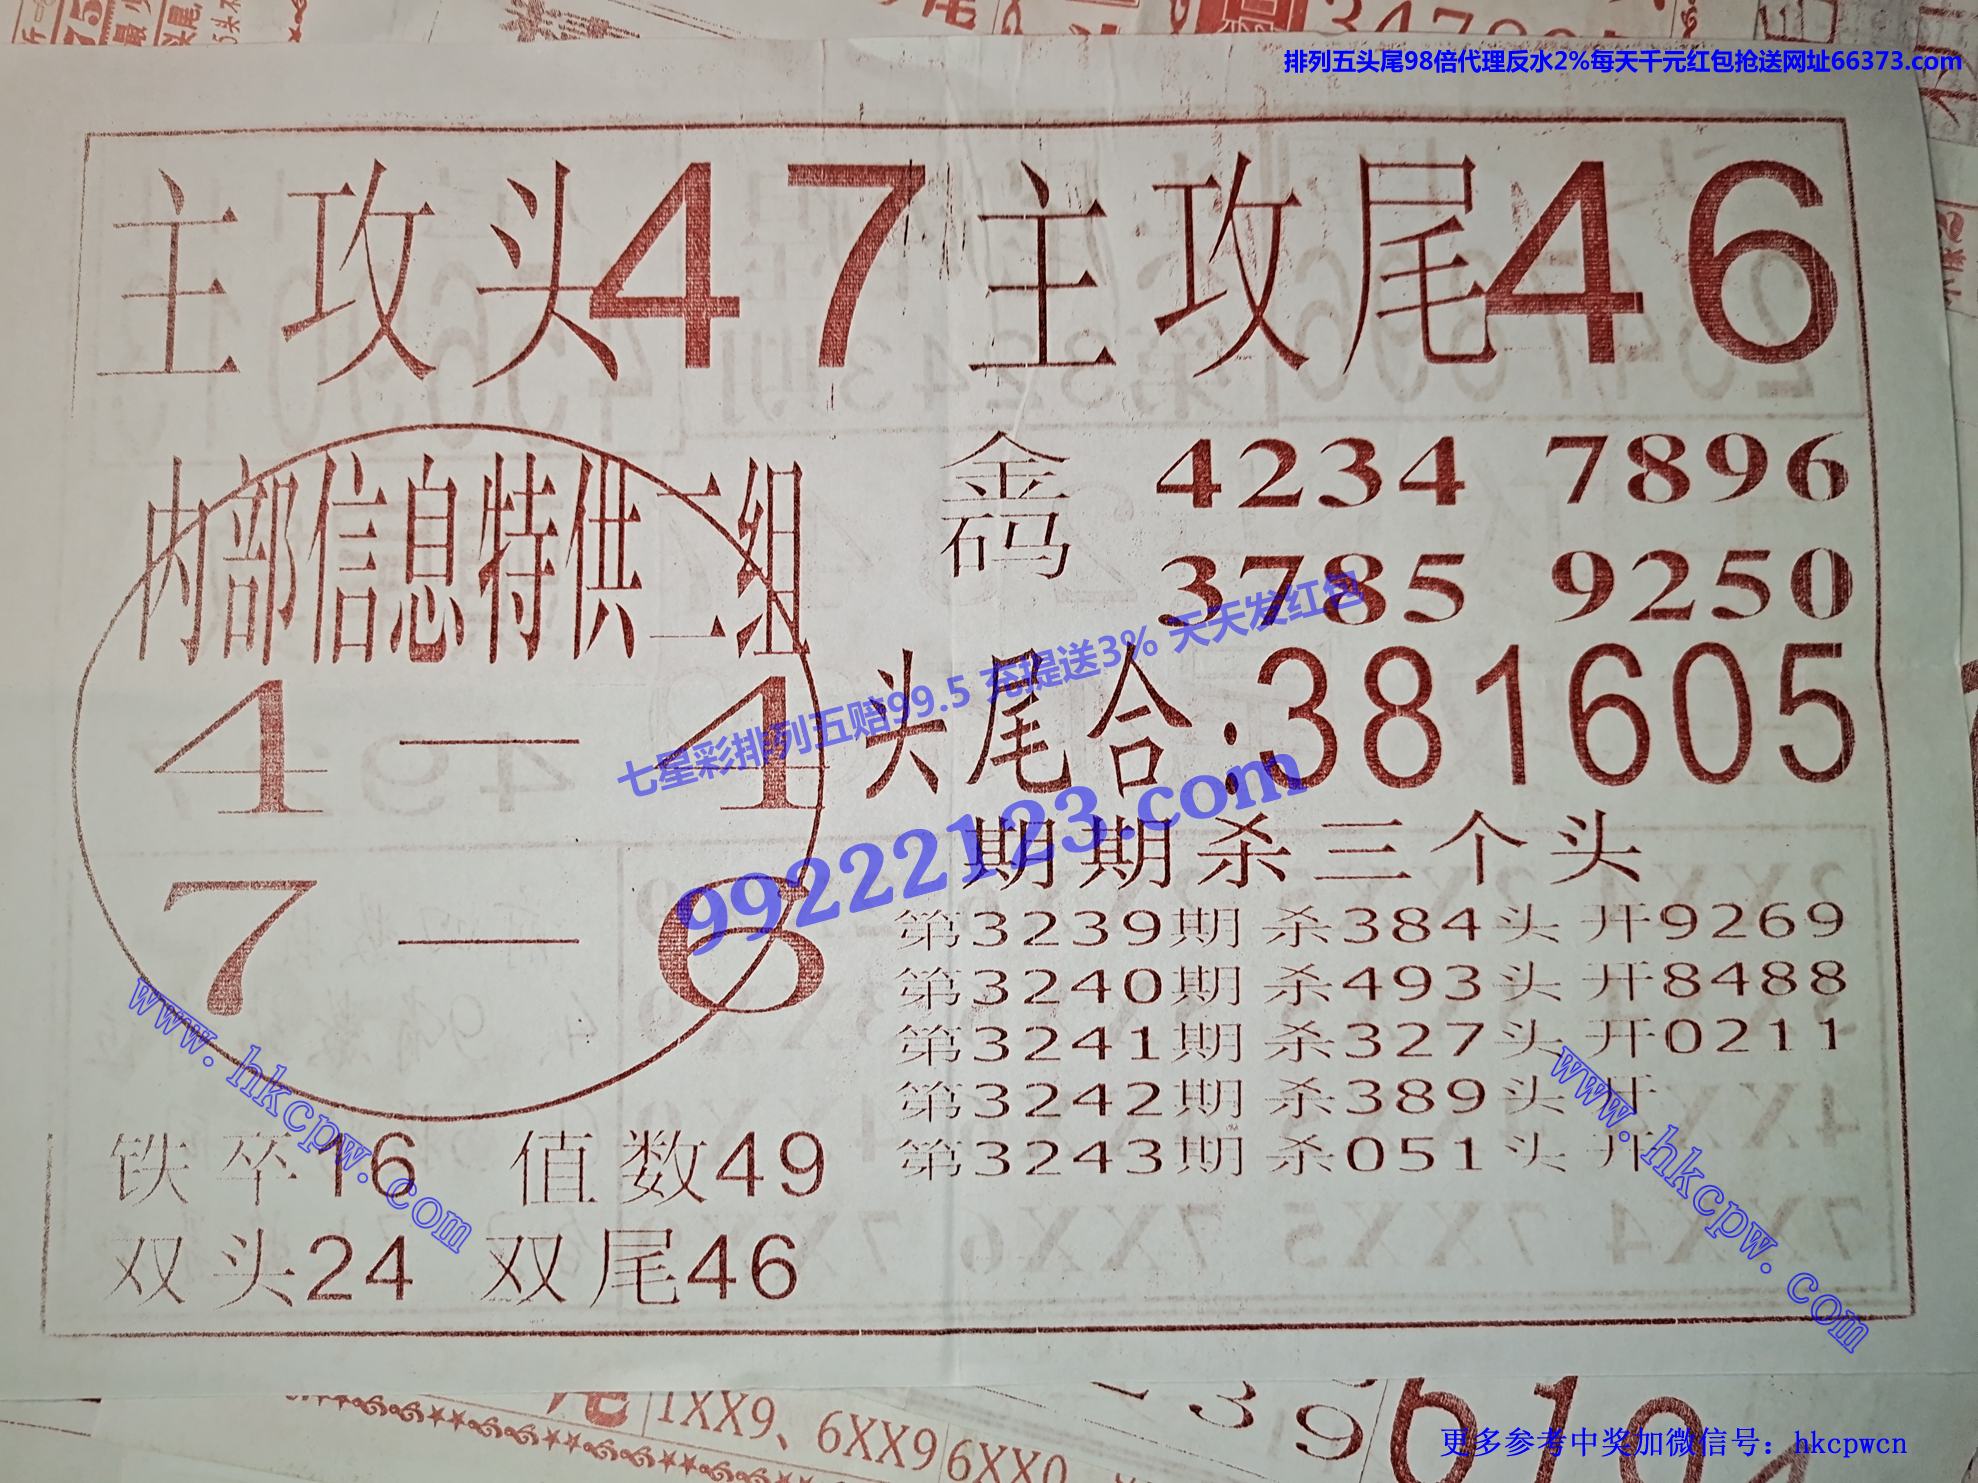 排列五头尾98倍代理反水2%每天千元红包抢送网址66373.com
主攻头47 主攻尾46
内部信息特供二组
4—4
7—6
金码 4234 7896
3785 9250
头尾合:381605
七星彩排列五赔99.5 充提送3% 天天发红包
99222123.com
期期杀三个头
第3239期 杀384头 开9269
第3240期 杀493头 开8488
第3241期 杀327头 开0211
第3242期 杀389头 开
第3243期 杀051头 开
www.hkcpw.com
www.hkcpw.com
铁卒16 值数49
双头24 双尾46
1XX9、6XX9 6XX0
更多参考中奖加微信号：hkcpwcn